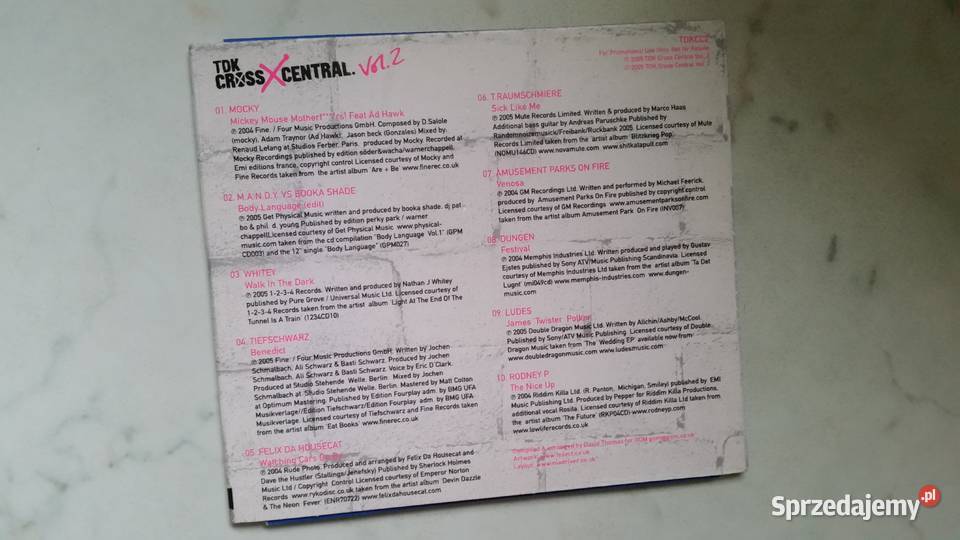 TDK
CROSS X CENTRAL. Vol.2
TDKCC2
For Promotional Use Only. Not for Resale
℗ 2005 TDK Cross Central Vol.
© 2005 TDK Cross Central Vol.
01. MOCKY
Mickey Mouse Motherf***rs! Feat Ad Hawk
℗ 2004 Fine. / Four Music Productions GmbH. Composed by D.Salole
(mocky), Adam Traynor (Ad Hawk), Jason beck (Gonzales) Mixed by:
Renaud Letang at Studios Ferber, Paris. produced by Mocky. Recorded at
Mocky Recordings published by edition söder&wacha/warnerchappell,
Emi editions france, copyright control Licensed courtesy of Mocky and
Fine Records taken from the artist album 'Are + Be' www.finerec.co.uk
02. M.A.N.D.Y. VS BOOKA SHADE
Body Language (edit)
℗ 2005 Get Physical Music written and produced by booka shade, dj pat
bo & phil. d. young Published by edition perky park / warner
chappell Licensed courtesy of Get Physical Music www.physical-
music.com taken from the cd compilation "Body Language Vol.1" (GPM
CD003) and the 12" single "Body Language" (GPM027)
03. WHITEY
Walk In The Dark
℗ 2005 1-2-3-4 Records. Written and produced by Nathan J Whitey
published by Pure Grove / Universal Music Ltd. Licensed courtesy of
1-2-3-4 Records taken from the artist album 'Light At The End Of The
Tunnel Is A Train' (1234CD10)
04. TIEFSCHWARZ
Benedict
℗ 2005 Fine. / Four Music Productions GmbH. Written by Jochen
Schmalbach, Ali Schwarz & Basti Schwarz. Produced by Jochen
Schmalbach, Ali Schwarz & Basti Schwarz. Voice by Eric D'Clark.
Produced at Studio Stehende Welle, Berlin. Mixed by Jochen
Schmalbach at Studio Stehende Welle, Berlin. Mastered by Matt Colton
at Optimum Mastering. Published by Edition Fourplay adm. by BMG UFA
Musikverlage//Edition Tiefschwarz/Edition Fourplay adm. by BMG UFA
Musikverlage. Licensed courtesy of Tiefschwarz and Fine Records taken
from the artist album 'Eat Books' www.finerec.co.uk
05. FELIX DA HOUSECAT
Watching Cars Go By
℗ 2004 Rude Photo. Produced and arranged by Felix Da Housecat and
Dave the Hustler (Stallings/Jenefsky) Published by Sherlock Holmes
Music Ltd / Copyright Control Licensed courtesy of Emperor Norton
Records www.rykodisc.co.uk taken from the artist album 'Devin Dazzle
& The Neon Fever' (ENR70722) www.felixdahousecat.com
06. T.RAUMSCHMIERE
Sick Like Me
℗ 2005 Mute Records Limited. Written & produced by Marco Haas
Additional bass guitar by Andreas Paruschke Published by
Randomnoizemusick/Freibank/Ruckbank 2005. Licensed courtesy of Mute
Records Limited taken from the artist album 'Blitzkrieg Pop'
(NOMU146CD) www.novamute.com www.shitkatapult.com
07. AMUSEMENT PARKS ON FIRE
Venosa
℗ 2004 GM Recordings Ltd. Written and performed by Michael Feerick,
produced by Amusement Parks On Fire published by copyright control
Licensed courtesy of GM Recordings www.amusementparksonfire.com
taken from the artist album Amusement Park On Fire (INV007)
08. DUNGEN
Festival
℗ 2004 Memphis Industries Ltd. Written produced and played by Gustav
Ejstes published by Sony ATV/Music Publishing Scandinavia. Licensed
courtesy of Memphis Industries Ltd taken from the artist album 'Ta Det
Lugnt' (mi049cd) www.memphis-industries.com www.dungen-
music.com
09. LUDES
James 'Twister' Polker
℗ 2005 Double Dragon Music Ltd. Written by Allchin/Ashby/McCool
Published by Sony/ATV Music Publishing Licensed courtesy of Double
Dragon Music taken from 'The Wedding EP' available now from
www.doubledragonmusic.com www.ludesmusic.com
10. RODNEY P
The Nice Up
℗ 2004 Riddim Killa Ltd. (R. Panton, Michigan, Smiley) published by EMI
Music Publishing Ltd. Produced by Pepper for Riddim Killa Productions,
additional vocal Rosila. Licensed courtesy of Riddim Killa Ltd taken from
the artist album 'The Future' (RKP04CD) www.rodneyp.com
www.lowliferecords.co.uk
Compiled & arranged by David Thomas for
Artwork:
Layout:
Sprzedajemy.pl